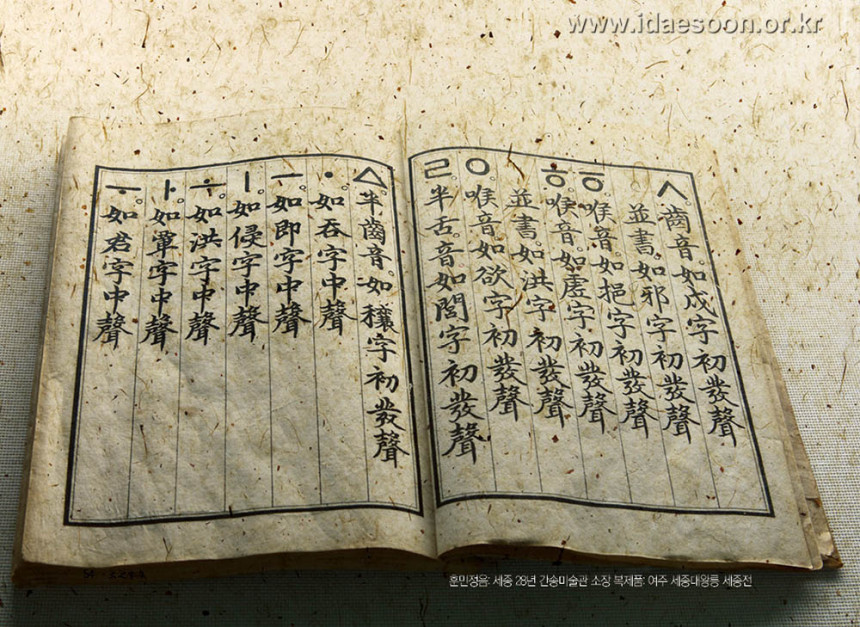 www.idaesoon.or.kr
ㅅ。齒音。如戌字初發聲
並書。如邪字初發聲
ㆆ。喉音。如挹字初發聲
ㅎ。喉音。如虛字初發聲
並書。如洪字初發聲
ㅇ。喉音。如欲字初發聲
ㄹ。半舌音。如閭字初發聲
ㅿ。半齒音。如穰字初發聲
ㆍ。如呑字中聲
ㅡ。如即字中聲
ㅣ。如侵字中聲
ㅗ。如洪字中聲
ㅏ。如覃字中聲
ㅜ。如君字中聲
훈민정음: 세종 28년 간송미술관 소장 복제품: 여주 세종대왕릉 세종전